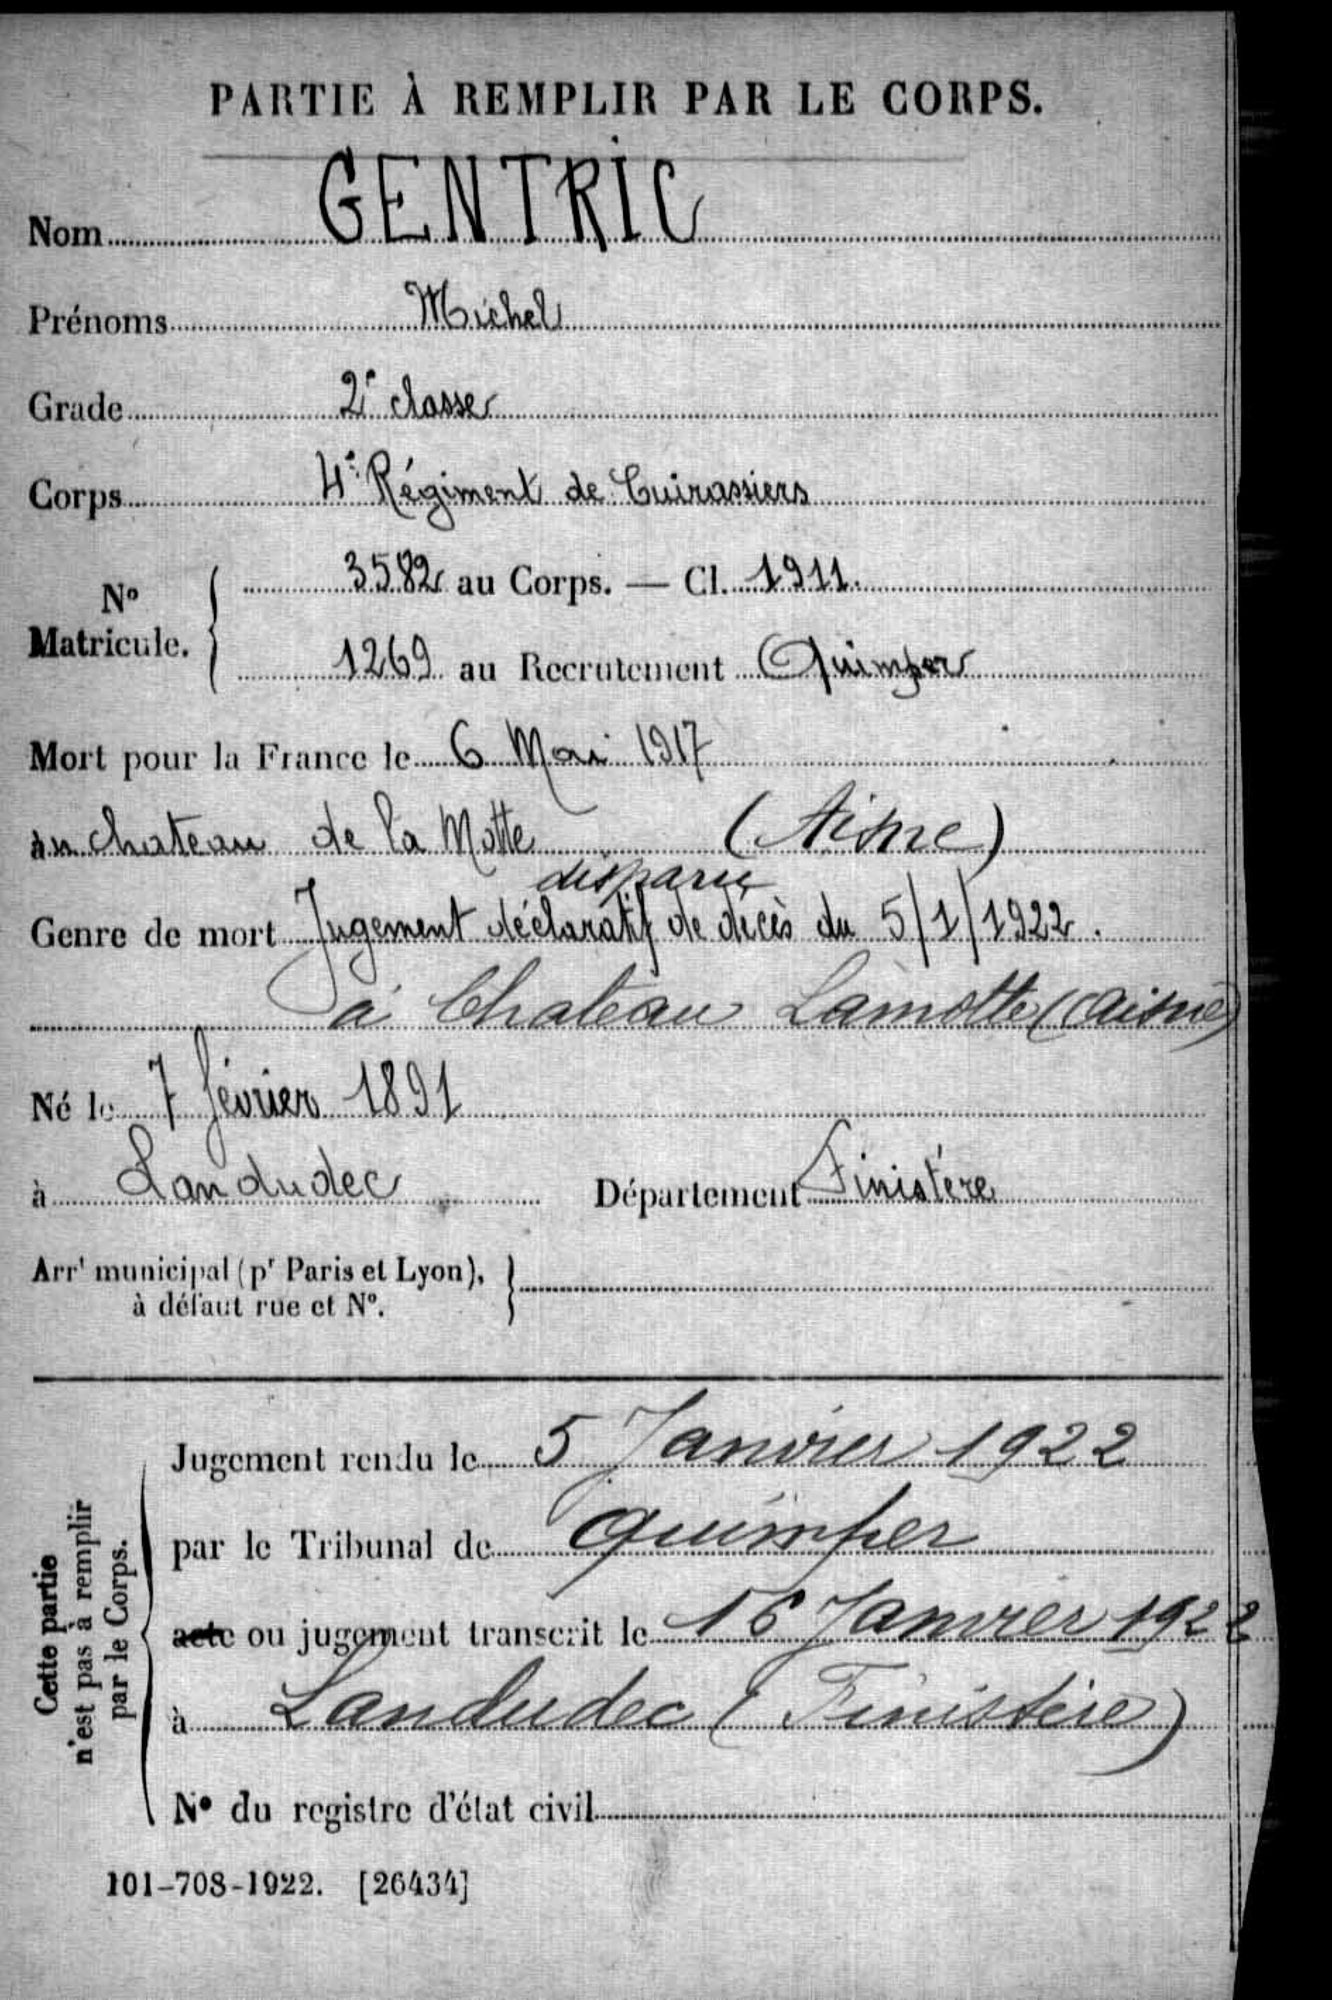 PARTIE À REMPLIR PAR LE CORPS.
Nom GENTRIC
Prénoms Michel
Grade 2e classe
Corps 4e Régiment de Cuirassiers
No Matricule. { 3582 au Corps. — Cl. 1911.
1269 au Recrutement Quimper
Mort pour la France le 6 Mai 1917
au chateau de la Motte (Aisne)
disparu
Genre de mort Jugement déclaratif de décès du 5/1/1922.
à Chateau Lamotte (Aisne)
Né le 7 février 1891
à Landudec Département Finistère
Arrt municipal (pr Paris et Lyon), }
à défaut rue et No.
Cette partie
n'est pas à remplir
par le Corps.
Jugement rendu le 5 Janvier 1922
par le Tribunal de Quimper
acte ou jugement transcrit le 16 Janvier 1922
à Landudec (Finistère)
No du registre d'état civil
101-708-1922. [26434]